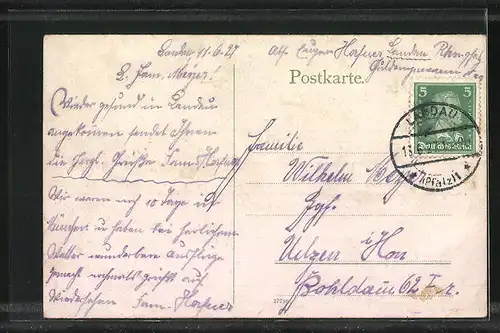 Landau, 11.6.27
Abs. Eugen Hafner Landau Rheinpfalz
L. Fam. Meyer!
Postkarte.
Wieder gesund in Landau
angekommen sendet Ihnen
die herzl. Grüße Fam. Hafner
Wir waren noch 10 Tage in
München u haben bei herrlichem
Wetter wunderbare Ausflüge
gemacht nochmals grüßt auf
Wiedersehen Fam. Hafner
5 5
Deutsches Reich
LANDAU
(Pfalz) 1
Familie
Wilhelm Meyer
Uelzen i. Han
Bohldamm 62